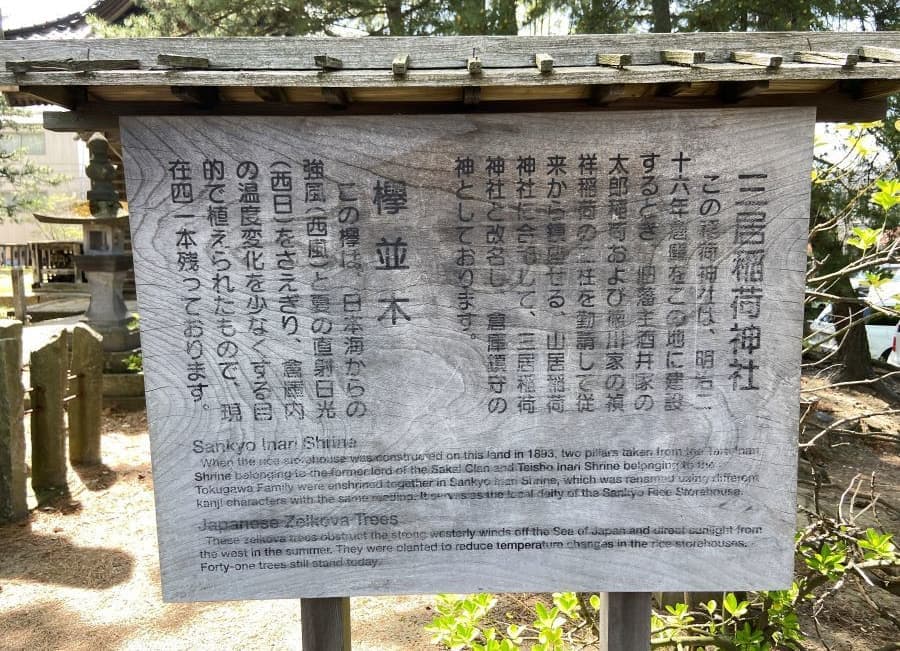 三居稲荷神社
この稲荷神社は、明治二
十六年倉庫をこの地に建設
するとき、旧藩主酒井家の
太郎稲荷および徳川家の禎
祥稲荷の二柱を勧請して従
来から鎮座せる、山居稲荷
神社に合祀して、三居稲荷
神社と改名し、倉庫鎮守の
神としております。
欅並木
この欅は、日本海からの
強風(西風)と夏の直射日光
(西日)をさえぎり、倉庫内
の温度変化を少なくする目
的で植えられたもので、現
在四一本残っております。
Sankyo Inari Shrine
When the rice storehouse was constructed on this land in 1893, two pillars taken from the Taro Inari
Shrine belonging to the former lord of the Sakai Clan and Teisho Inari Shrine belonging to the
Tokugawa Family were enshrined together in Sankyo Inari Shrine, which was renamed using different
kanji characters with the same reading. It serves as the local deity of the Sankyo Rice Storehouse.
Japanese Zelkova Trees
These zelkova trees obstruct the strong westerly winds off the Sea of Japan and direct sunlight from
the west in the summer. They were planted to reduce temperature changes in the rice storehouses.
Forty-one trees still stand today.